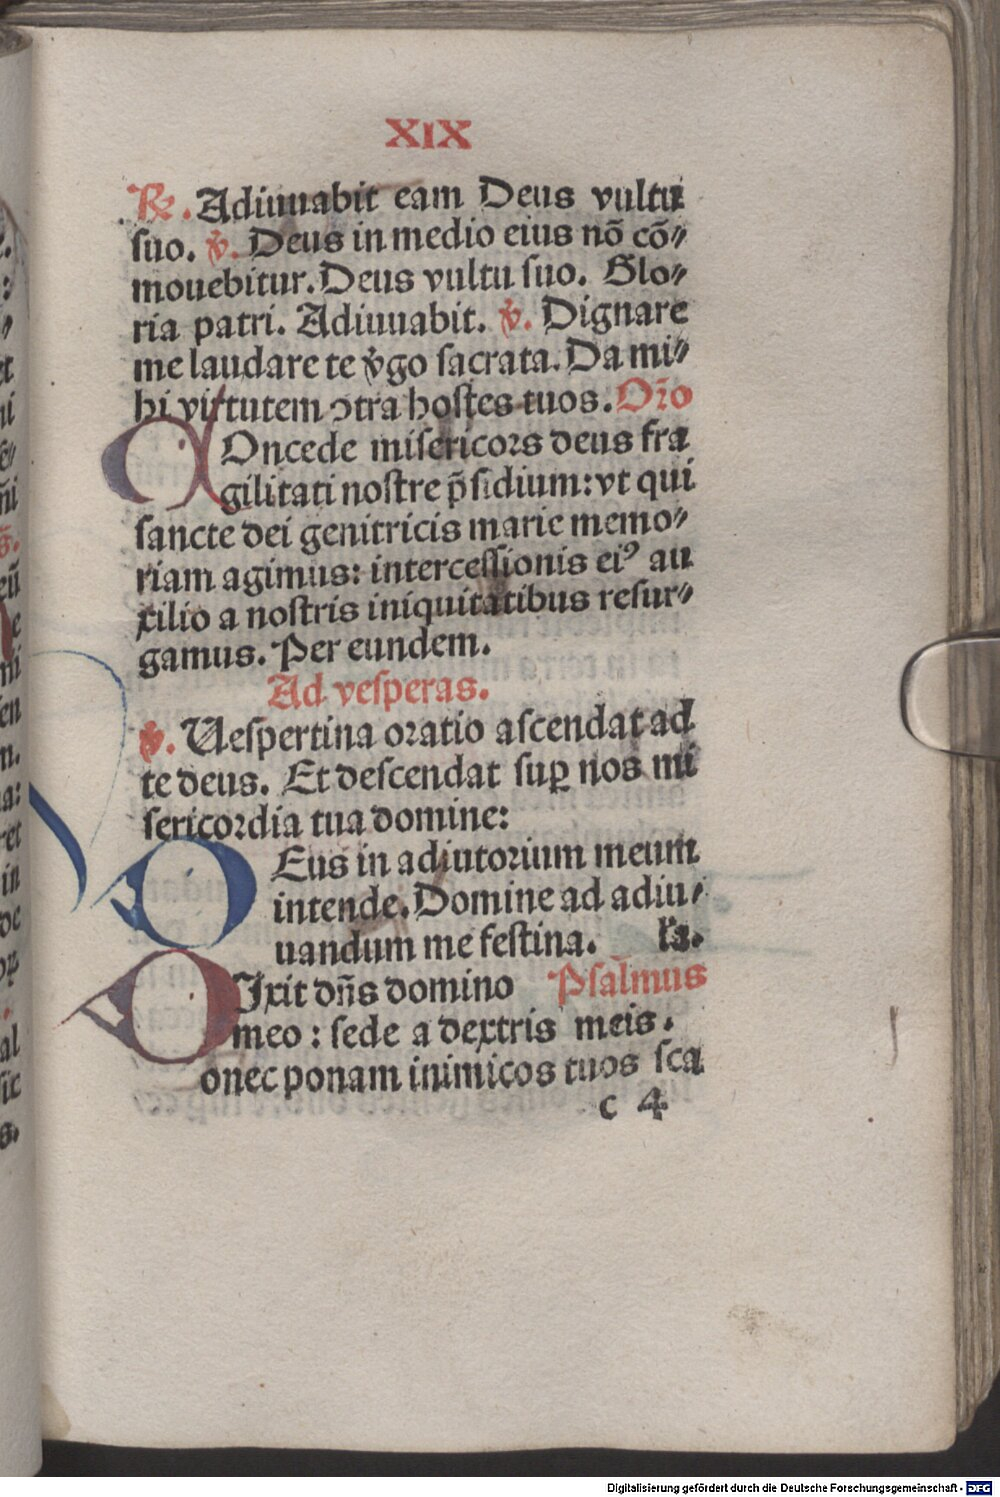 XIX
℟. Adiuuabit eam Deus vultu
suo. ℣. Deus in medio eius nō cō⸗
mouebitur. Deus vultu suo. Glo⸗
ria patri. Adiuuabit. ℣. Dignare
me laudare te v̄go sacrata. Da mi⸗
hi virtutem ↄtra hostes tuos. Or̄o
COncede misericors deus fra
gilitati nostre p̄sidium: vt qui
sancte dei genitricis marie memo⸗
riam agimus: intercessionis eiꝰ au
xilio a nostris iniquitatibus resur⸗
gamus. Per eundem.
Ad vesperas.
℣. Uespertina oratio ascendat ad
te deus. Et descendat suꝑ nos mi
sericordia tua domine:
DEus in adiutorium meum
intende. Domine ad adiu⸗
uandum me festina.
DIxit dn̄s domino Psalmus
meo: sede a dextris meis.
onec ponam inimicos tuos sca
c 4
Digitalisierung gefördert durch die Deutsche Forschungsgemeinschaft - DFG